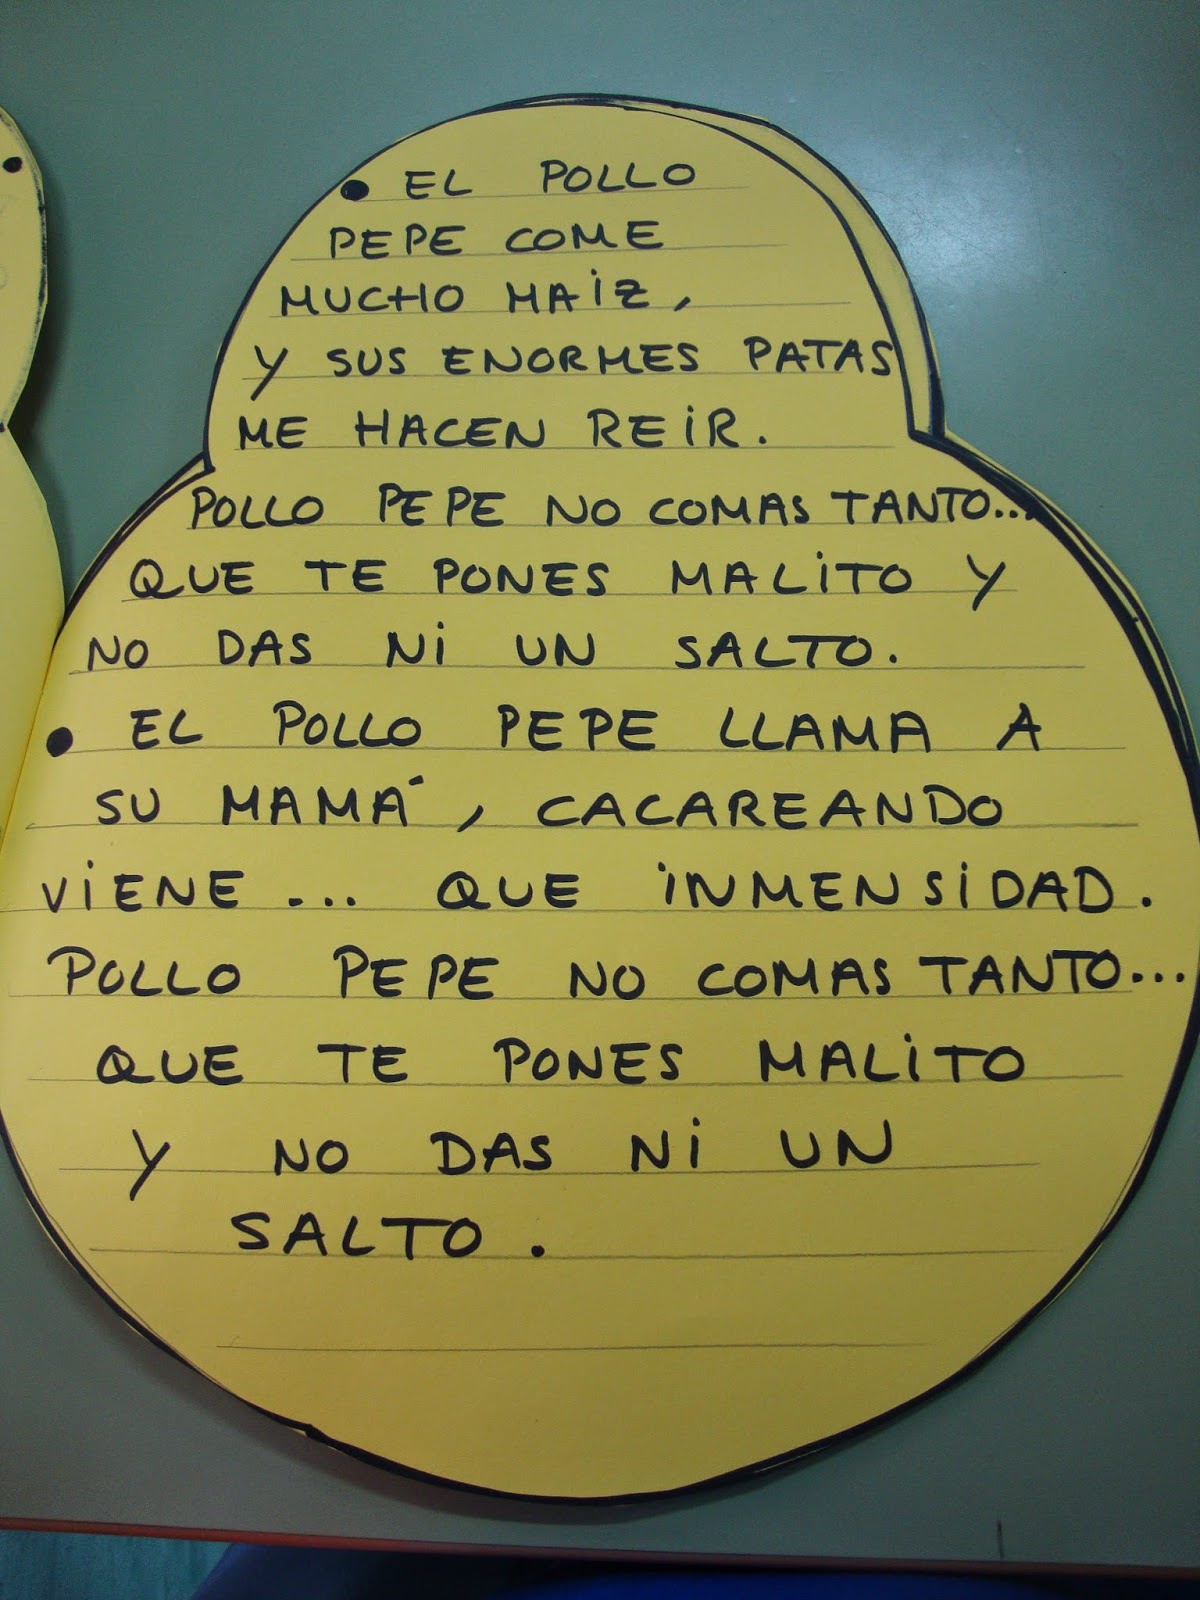 • EL POLLO
PEPE COME
MUCHO MAiZ,
Y SUS ENORMES PATAS
ME HACEN REiR.
POLLO PEPE NO COMAS TANTO...
QUE TE PONES MALiTO Y
NO DAS Ni UN SALTO.
• EL POLLO PEPE LLAMA A
SU MAMÁ, CACAREANDO
ViENE... QUE iNMENSiDAD.
POLLO PEPE NO COMAS TANTO...
QUE TE PONES MALiTO
Y NO DAS Ni UN
SALTO.